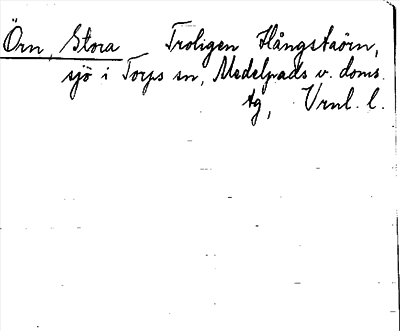 Örn, Stora Troligen Hångstaörn,
sjö i Torps sn, Medelpads v. doms.
tg, Vrnl. l.